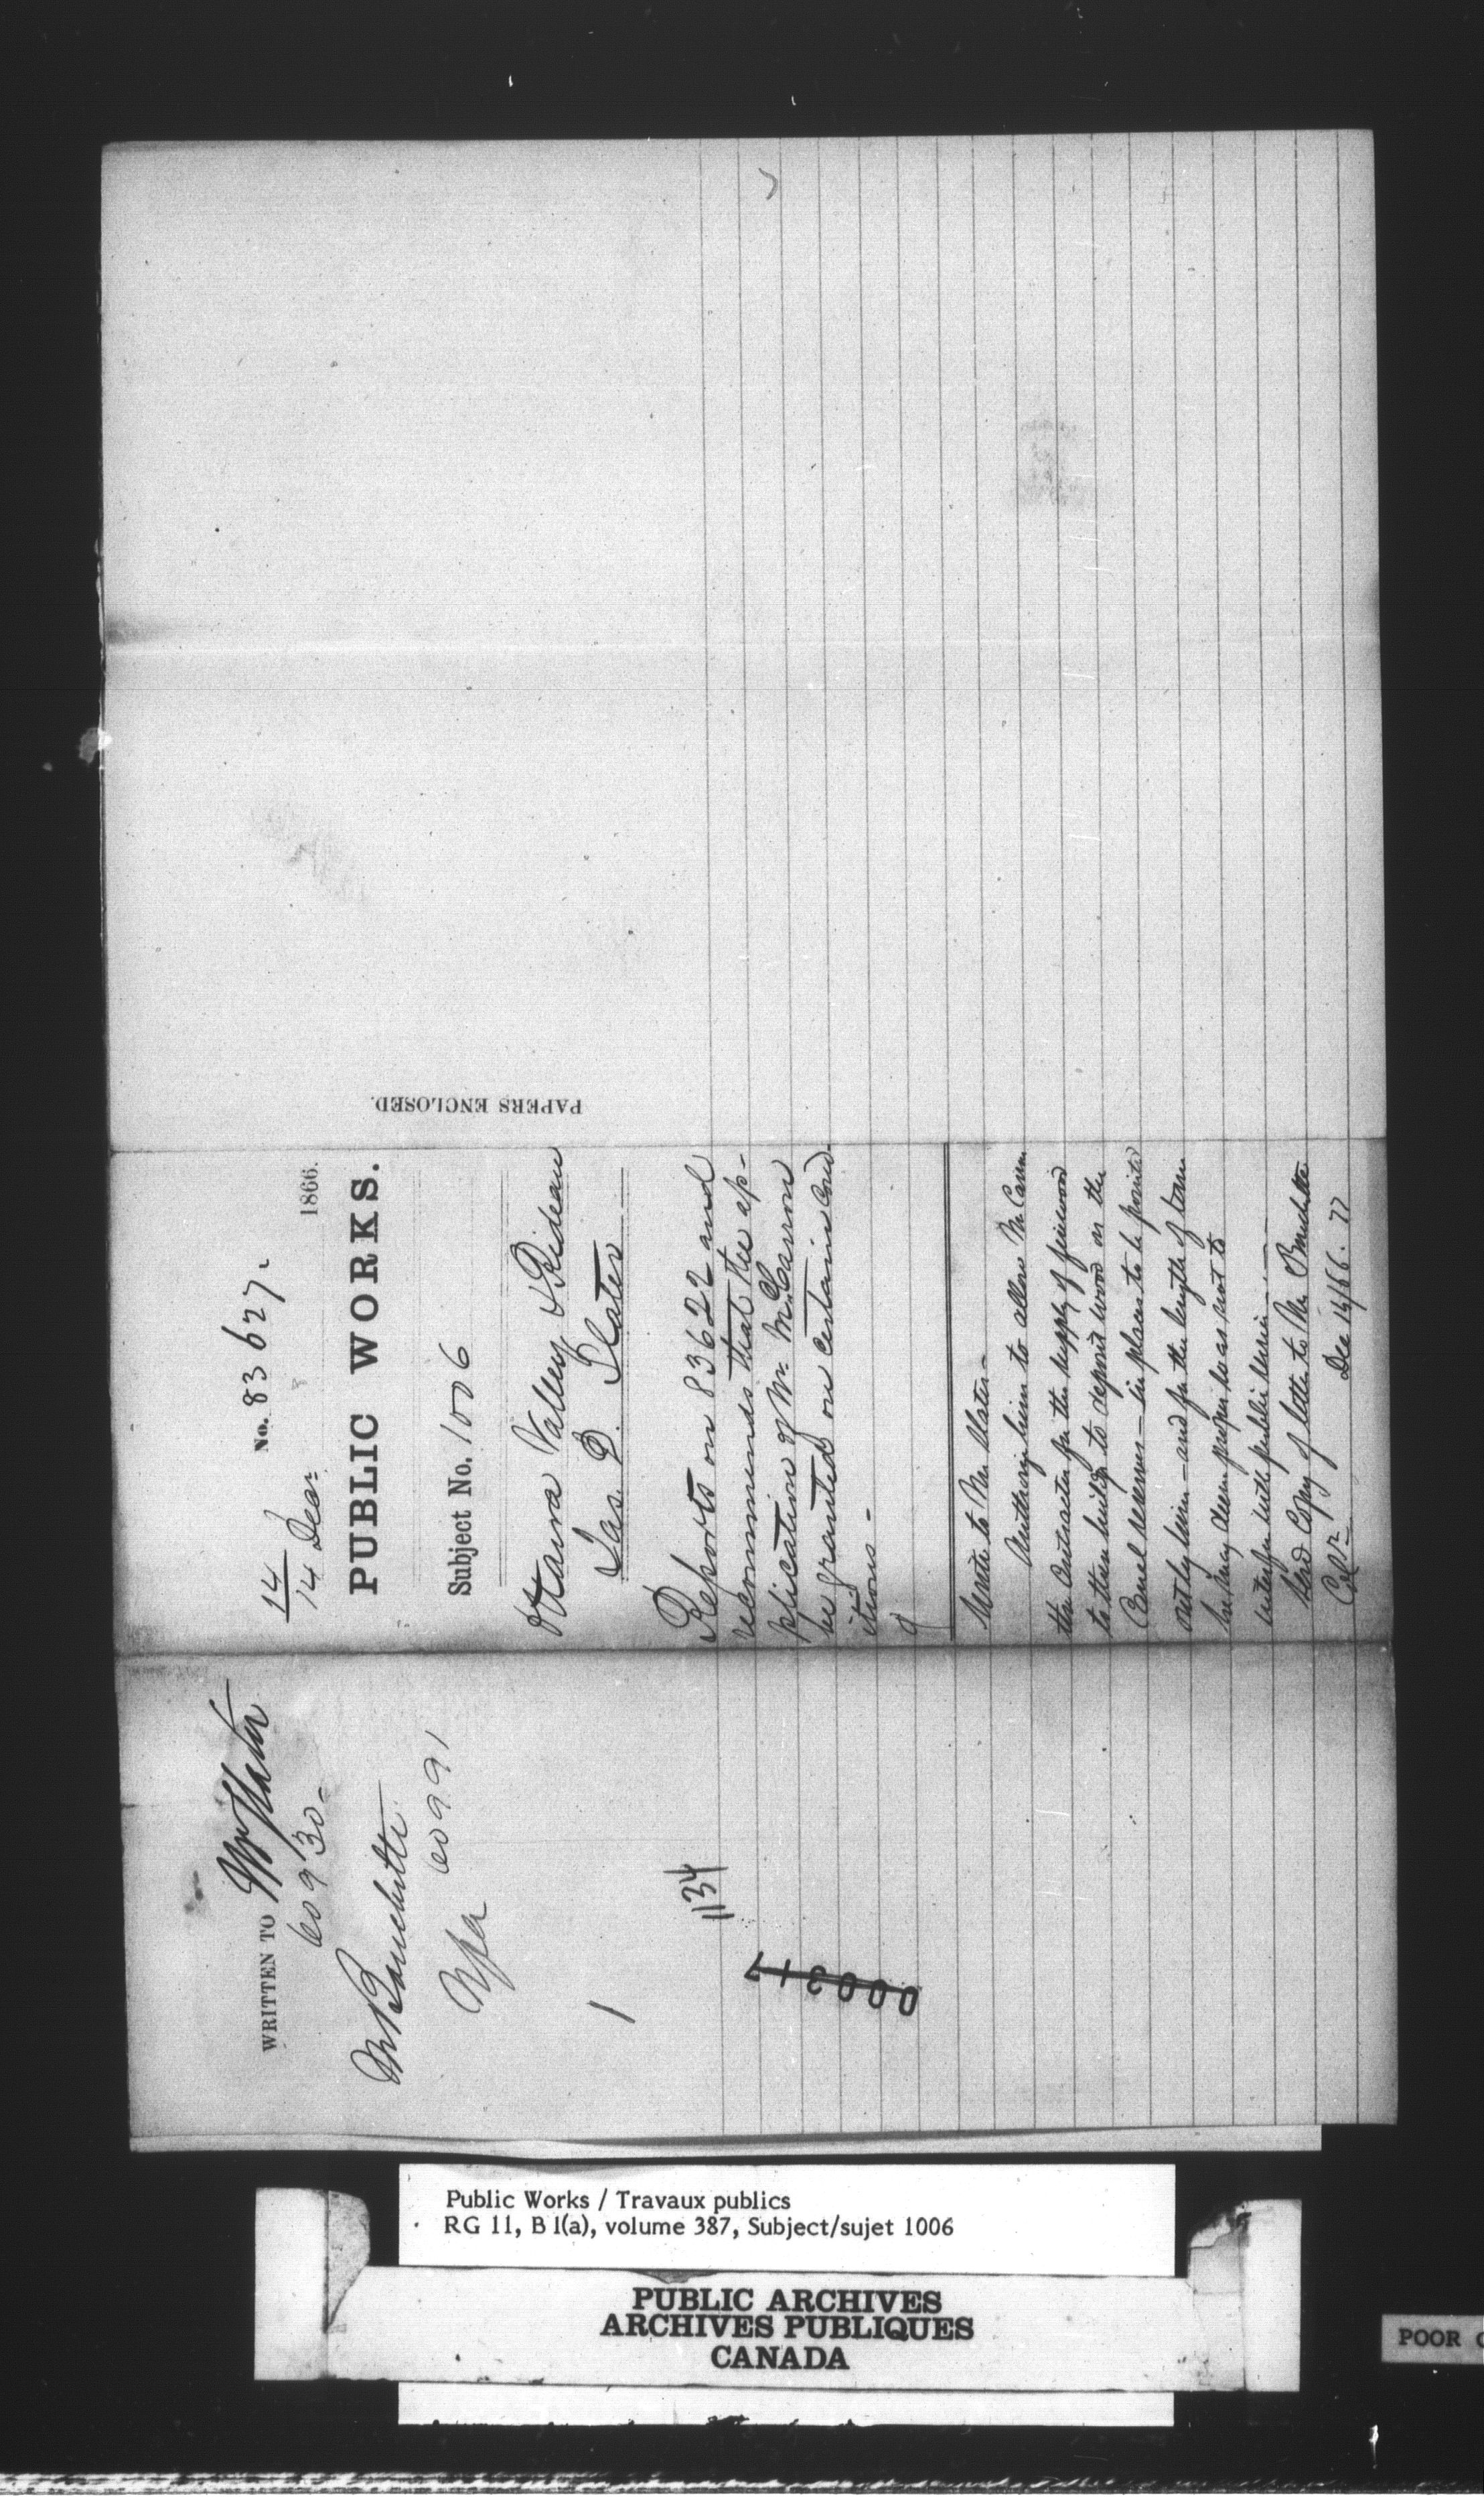 WRITTEN TO Mr Slater
60930-
Mr Bouchette
60991
1
1134
000317
14
14 Decr.
No. 83627.
1866.
PUBLIC WORKS.
Subject No. 1006
Ottawa Valley & Rideau
Jas. D. Slater
Reports on 83622 and
recommends that the ap-
plication of Mr. McCarron
be granted on certain cond-
itions -
Write to Mr. Slater -
Authorizing him to allow McCarron
the Contractor for the supply of firewood
to these buildgs to deposit wood on the
Canal reserves - in places to be pointed
out by him - and for the length of time
he may deem proper so as not to
interfere with public service -
Send Copy of letter to Mr Bouchette
Dec 14/66.
PAPERS ENCLOSED.
Public Works / Travaux publics
RG 11, B 1(a), volume 387, Subject/sujet 1006
PUBLIC ARCHIVES
ARCHIVES PUBLIQUES
CANADA
POOR